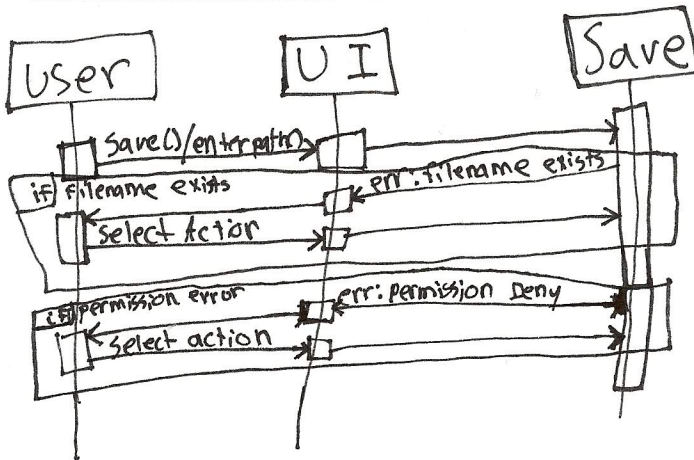 User
UI
Save
Save()/enterpath()
err: filename exists
if filename exists
select Action
err: permission Deny
if permission error
select action